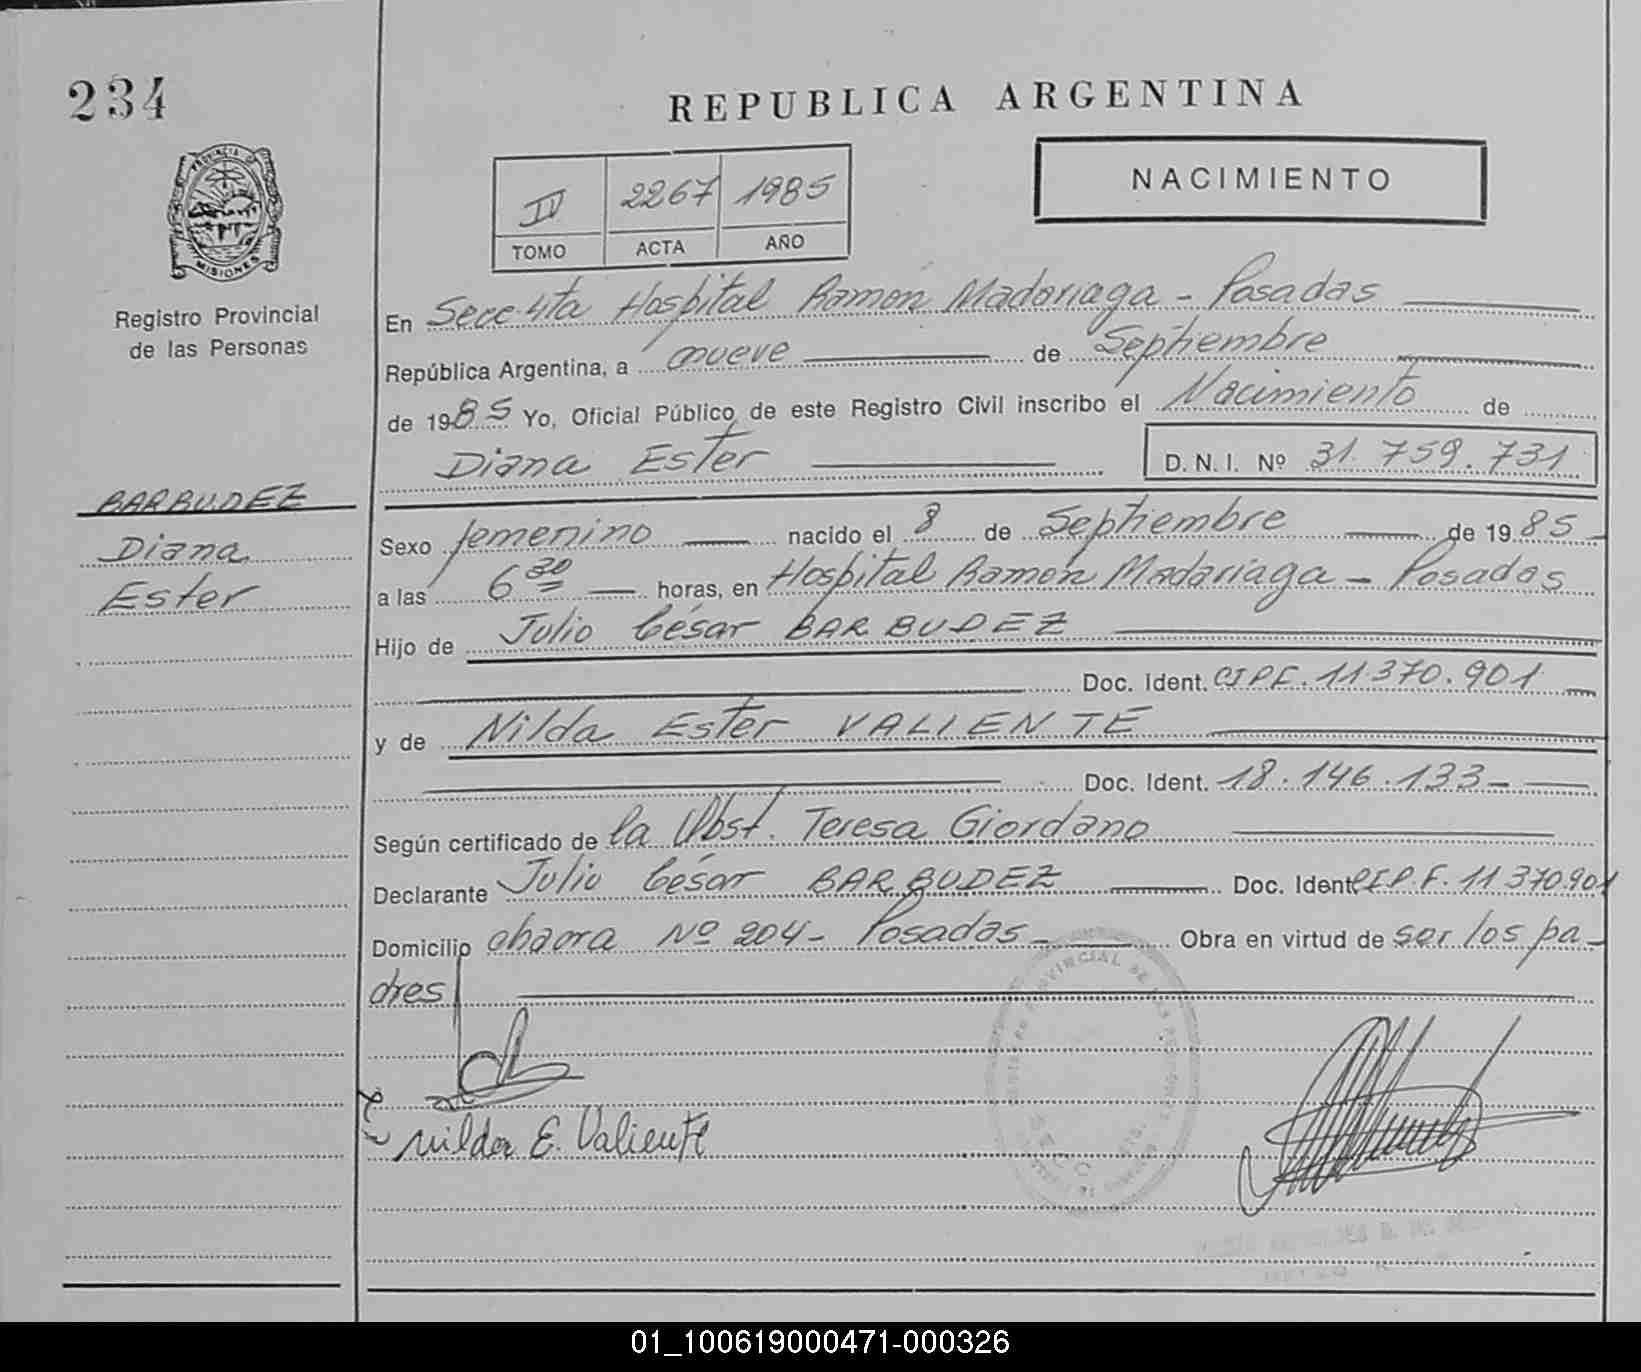 234
REPUBLICA ARGENTINA
NACIMIENTO
IV 2267 1985
TOMO ACTA AÑO
PROVINCIA DE
MISIONES
Registro Provincial
de las Personas
En Secc 4ta Hospital Ramón Madariaga - Posadas
República Argentina, a nueve de Septiembre
de 1985 Yo, Oficial Público de este Registro Civil inscribo el Nacimiento de
Diana Ester D. N. I. Nº 31.759.731
BARBUDEZ
Diana
Ester
Sexo femenino nacido el 8 de Septiembre de 1985
a las 6 30 horas, en Hospital Ramón Madariaga - Posadas
Hijo de Julio César BARBUDEZ
Doc. Ident. CIPF. 11.370.901
y de Nilda Ester VALIENTE
Doc. Ident. 18.146.133-
Según certificado de la Obst. Teresa Giordano
Declarante Julio César BARBUDEZ Doc. Ident. CIP.F. 11370.901
Domicilio chacra Nº 204- Posadas- Obra en virtud de ser los pa-
dres
Nilda E. Valiente
01_100619000471-000326